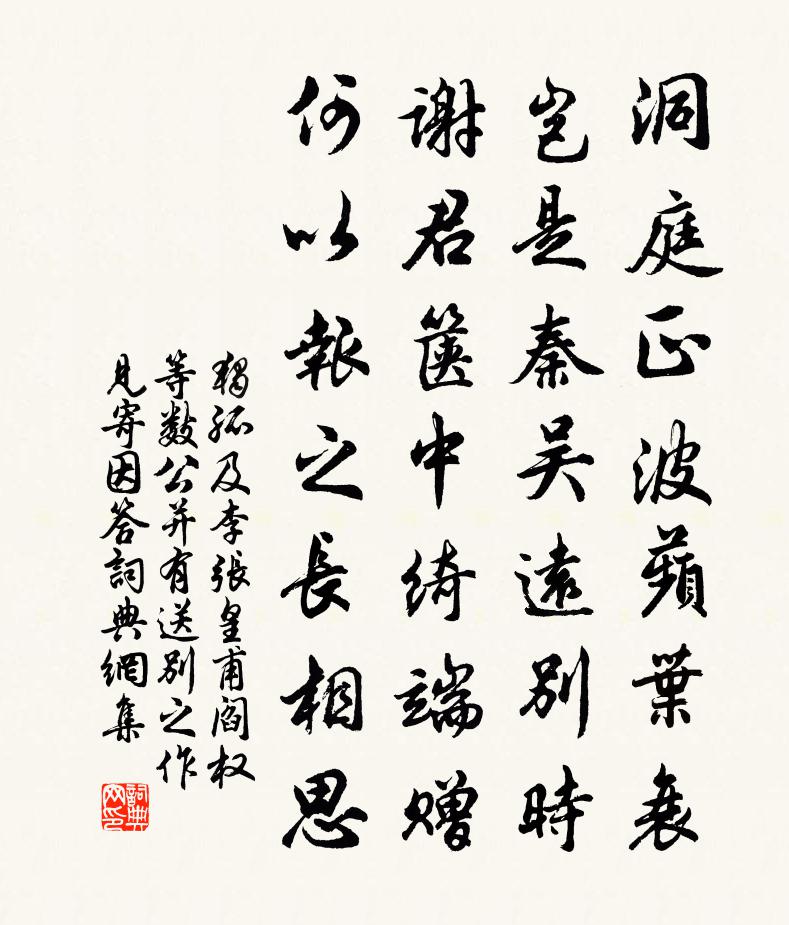 洞庭正波蘋葉衰
豈是秦吴遠別時
謝君箧中綺端贈
何以報之長相思
獨孤及李張皇甫閻权
等數公并有送別之作
見寄因答詞典網集
詞典
网印